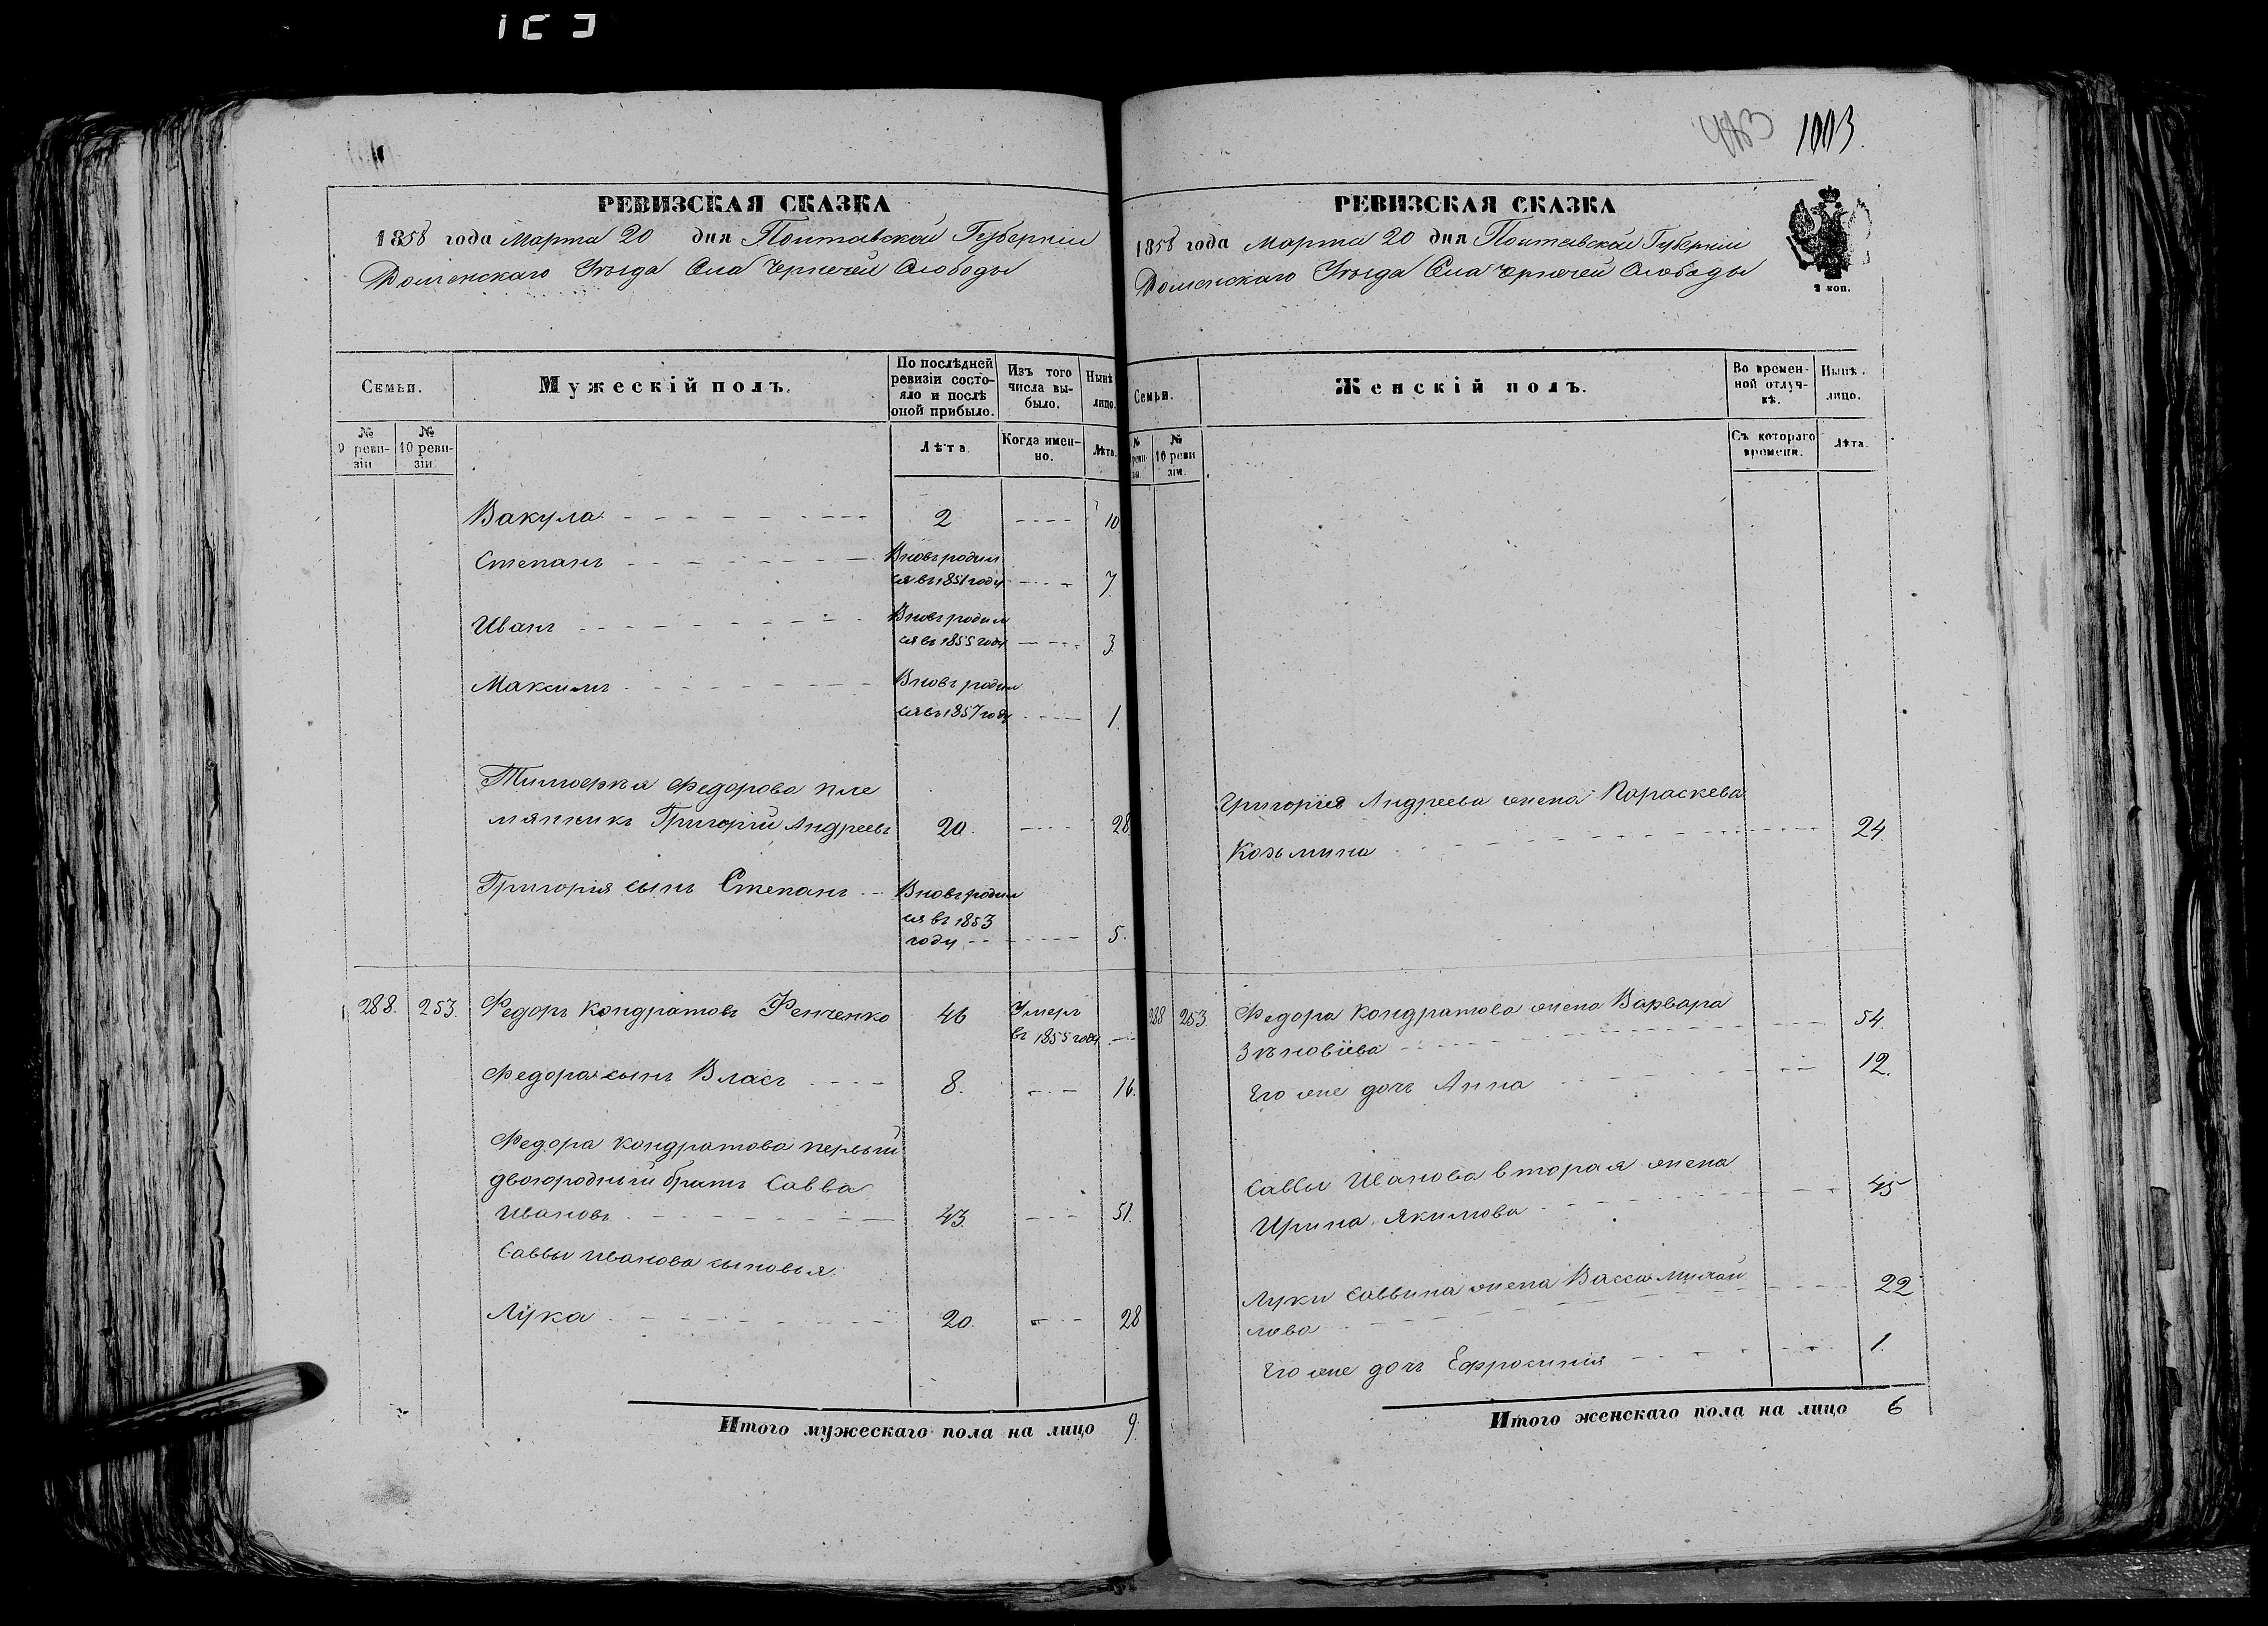 1003.
РЕВИЗСКАЯ СКАЗКА
1858 года Марта 20 дня Полтавской Губерніи
Роменскаго Уѣзда Села Чернечей Слободы
Семьи.
Мужескій полъ.
По послѣдней ревизіи состояло и послѣ оной прибыло.
Изъ того числа выбыло.
Нынѣ лицо.
№ 9 ревизіи
№ 10 ревизіи
Лѣта
Когда именно.
Лѣта.
Вакула 2 10
Степанъ Вновь родил
ся въ 1851 году 7.
Иванъ Вновь родил
ся въ 1855 году 3.
Максимъ Вновь родил
ся въ 1857 году 1.
Тимофея Федорова пле
мянникъ Григорій Андреевъ 20. 28
Григорія сынъ Степанъ Вновь родил
ся въ 1853
году 5.
288. 253. Федоръ Кондратовъ Фенченко 46 Умеръ
въ 1855 году
Федора сынъ Власъ 8. 16.
Федора Кондратова первый
двоюродный братъ Савва
Ивановъ 43. 51.
Саввы Иванова сыновья:
Лука 20. 28
Итого мужескаго пола на лицо 9.
РЕВИЗСКАЯ СКАЗКА
1858 года Марта 20 дня Полтавской Губерніи
Роменскаго Уѣзда Села Чернечей Слободы
2 коп.
Семьи.
Женскій полъ.
Во временной отлучкѣ.
Нынѣ лицо.
№ реви зіи
№ 10 реви зіи.
Съ котораго времени.
Лѣта
Григорія Андреева жена Параскева
Козьмина 24.
288 253. Федора Кондратова жена Варвара
Зѣновіева 54.
Его же дочь Анна 12.
Саввы Иванова вторая жена
Ирина Якимова 45
Луки Саввина жена Васса Михай
лова 22
Его же дочь Ефросинія 1.
Итого женскаго пола на лицо 6